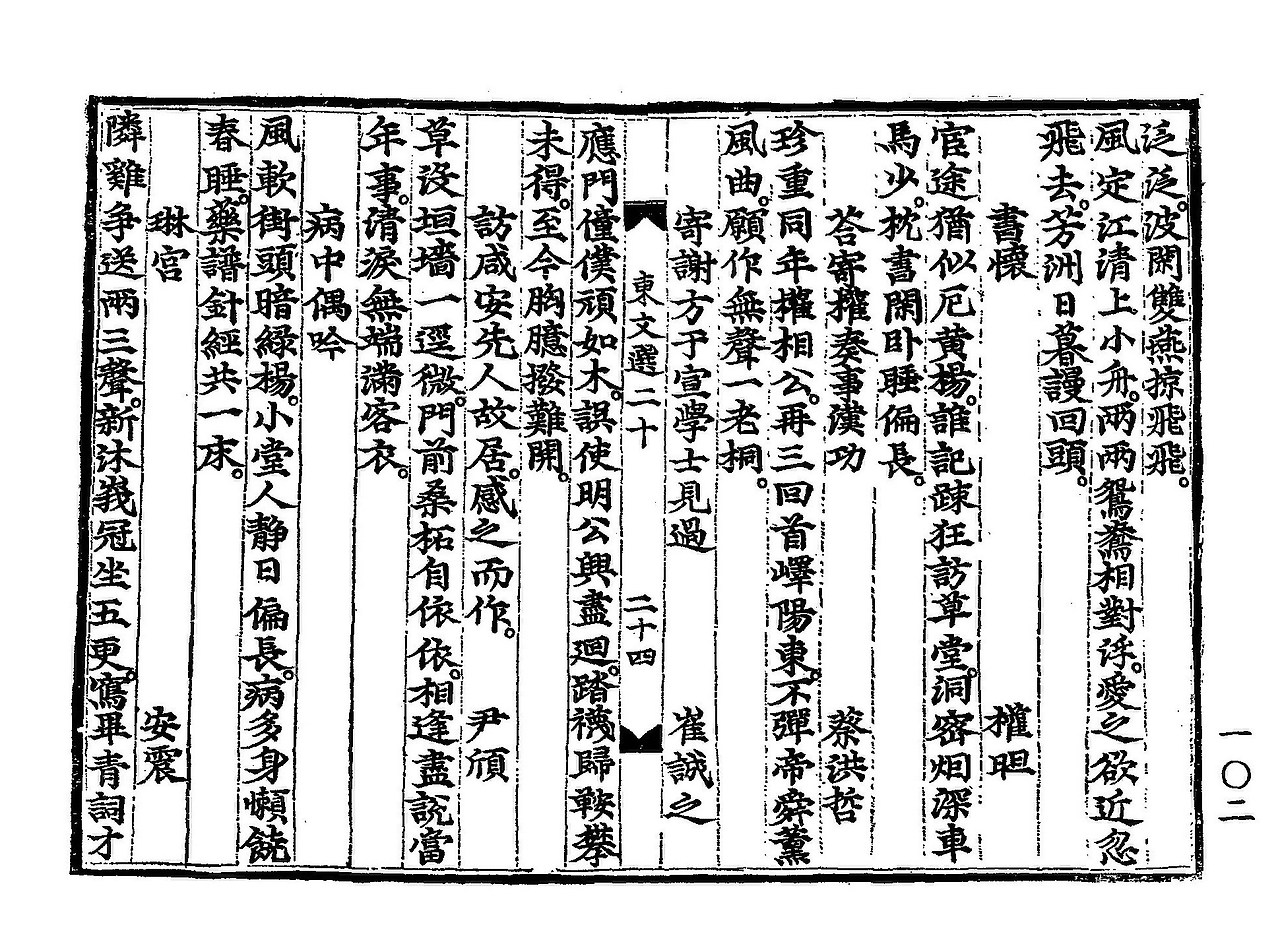 泛泛。波閑雙燕掠飛飛。
風定江清上小舟。兩兩鴛鴦相對浮。愛之欲近忽
飛去。芳洲日暮謾回頭。
書懷 權㫜
官途猶似厄黄楊。誰記踈狂訪草堂。洞密烟深車
馬少。枕書閑卧睡偏長。
荅寄權奏事漢功 蔡洪哲
珍重同年權相公。再三回首嶧陽東。不彈帝舜薰
風曲。願作無聲一老桐。
寄謝方于宣學士見過 崔誠之
東文選二十 二十四
應門僮僕頑如木。誤使明公興盡迴。踏襪歸鞍攀
未得。至今胸臆撥難開。
訪咸安先人故居。感之而作。 尹頎
草沒垣墻一逕微。門前桑柘自依依。相逢盡說當
年事。清淚無端滿客衣。
病中偶吟
風軟街頭暗綠楊。小堂人静日偏長。病多身懶饒
春睡。藥譜針經共一床。
琳宮 安震
隣雞争送兩三聲。新沐峩冠坐五更。寫畢青詞才
一〇二